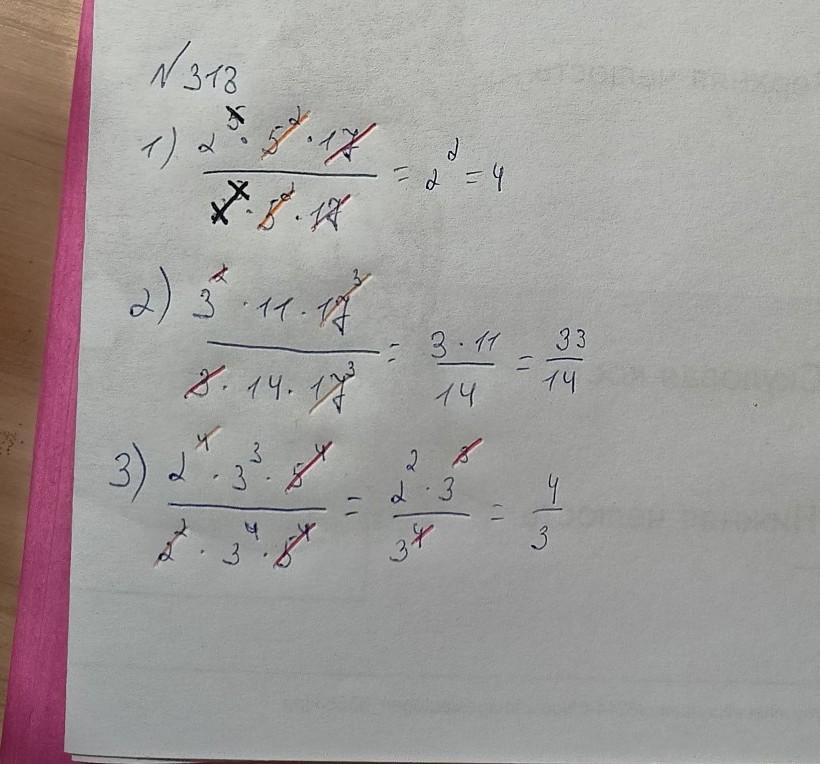 № 318
1) 2^5 · 5^2 · 17 / · 5^2 · 17 = 2^2 = 4
2) 3^2 · 11 · 17^3 / 3 · 14 · 17^3 = 3 · 11 / 14 = 33 / 14
3) 2^4 · 3^3 · 5^4 / 2^2 · 3^4 · 5^4 = 2^2 · 3^3 / 3^4 = 4 / 3